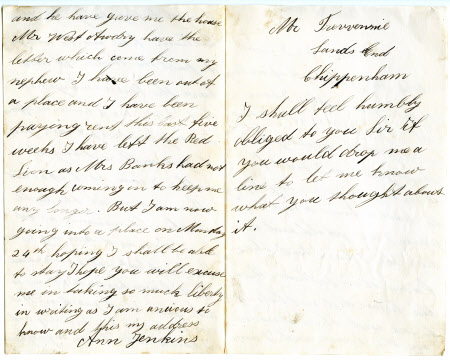 and he have gave me the house
Mr West Awdry have the
letter which come from my
nephew I have been out of
a place and I have been
paying rent this last five
weeks I have left the Red
Lion as Mrs Banks had not
enough coming in to keep me
any longer. But I am now
going into a place on Monday
24th hoping I shall be able
to stay I hope you will excuse
me in taking so much liberty
in writing as I am anxious to
know and this my address
Ann Jenkins
Mr
Sands End
Chippenham
I shall feel humbly
obliged to you Sir if
you would drop me a
line to let me know
what you thought about
it.